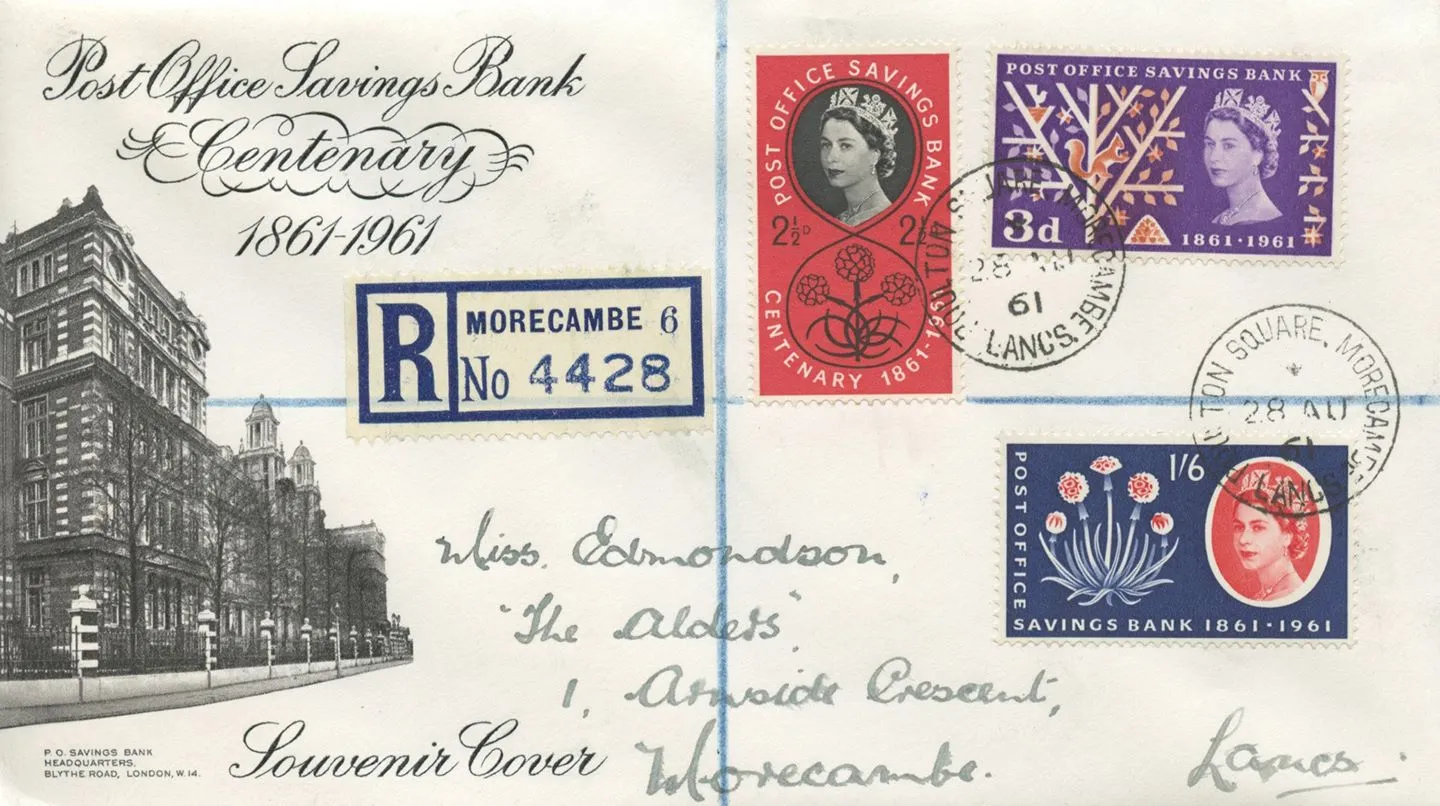 Post Office Savings Bank
Centenary
1861-1961
R
MORECAMBE 6
No 4428
POST OFFICE SAVINGS BANK
2½D 2½
CENTENARY 1861-1961
POST OFFICE SAVINGS BANK
3d
1861·1961
MORECAMBE
28 AU
61
LANCS.
SQUARE, MORECAMBE
28 AU
61
LANCS
1/6
POST OFFICE
SAVINGS BANK 1861·1961
Miss. Edmondson,
"The Alders"
1, Arnside Crescent,
Morecambe.
Lancs.
P.O. SAVINGS BANK
HEADQUARTERS,
BLYTHE ROAD, LONDON, W.14.
Souvenir Cover